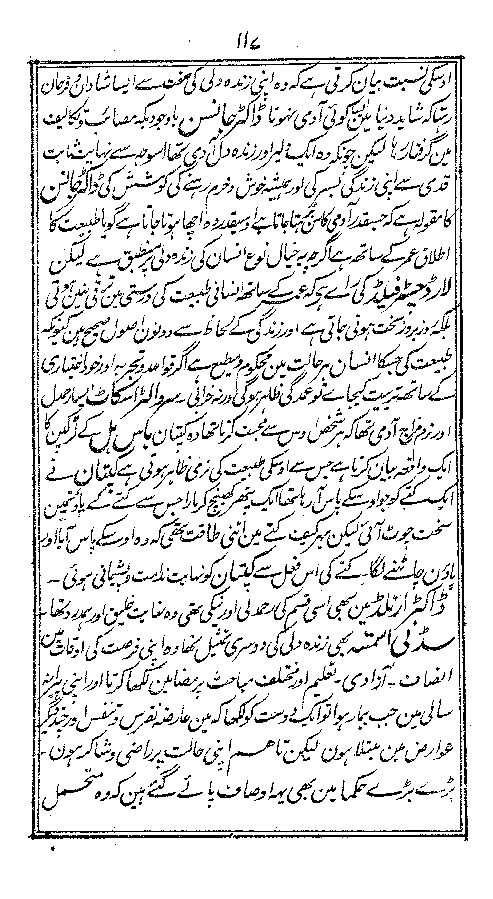 ۱۱۷
اوسکی نسبت بیان کرتی ہے کہ وہ اپنی زندہ دلی کی صفت سے ایسا شادان و فرحان
رہتا کہ شاید دنیا مین کوئی آدمی نہوتا ڈاکٹر جانسن باوجودیکہ مصائب و تکالیف
مین گرفتار رہا لیکن چونکہ وہ ایک دلیر اور زندہ دل آدمی تھا اسوجہ سے نہایت ثابت
قدمی سے اپنی زندگی بسر کی اور ہمیشہ خوش و خرم رہنے کی کوشش کی ڈاکٹر جانسن
کا مقولہ ہے کہ جسقدر آدمی کا سن بڑھتا جاتا ہے اوسیقدر وہ اچھا ہوتا جاتا ہے گویا طبیعت کا
اطلاق عمر کے ساتھ ہے اگرچہ یہ خیال نوع انسان کی زندہ دلی پر منطبق ہے لیکن
لارڈ چسٹر فیلڈ کی راے ہے کہ عمر کے ساتھ انسانی طبیعت کی درستی مین ترقی نہین ہوتی
بلکہ روز بروز سخت ہوتی جاتی ہے اور زندگی کے لحاظ سے دونون اصول صحیح ہین کیونکہ
طبیعت کی جسکا انسان ہر حالت مین محکوم و مطیع ہے اگر قواعد و تجربہ اور خود اختیاری
کے ساتھ تربیت کیجاے تو عمدگی ظاہر ہوگی ورنہ خرابی۔ سر والٹر اسکاٹ ایسا رحمدل
اور نرم مزاج آدمی تھا کہ ہر شخص اوس سے محبت کرتا تھا وہ کپتان باس ہل کے لڑکپن کا
ایک واقعہ بیان کرتا ہے جس سے اوسکی طبیعت کی نرمی ظاہر ہوتی ہے کپتان نے
ایک کتے کو جو اوسکے پاس آرہا تھا ایک پتھر کھینچ کر مارا جس سے کتے کے پاؤن مین
سخت چوٹ آئی لیکن پھر بھی کتے مین اتنی طاقت تھی کہ وہ اوسکے پاس آیا اور
پاؤن چاٹنے لگا۔ کتے کی اس فعل سے کپتان کو نہایت ندامت و پشیمانی ہوئی۔
ڈاکٹر ارنلڈ مین بھی اسی قسم کی رحمدلی اور نیکی تھی وہ نہایت خلیق اور ہمدرد تھا۔
سڈنی اسمتھ بھی زندہ دلی کی دوسری تمثیل تھا وہ اپنی فرصت کی اوقات مین
انصاف۔ آزادی۔ تعلیم اور مختلف مباحث پر مضامین لکھا کرتا اور اپنی پیرانہ
سالی مین جب بیمار ہوا تو ایک دوست کو لکھا کہ مین عارضہ نقرس و تنفس اور چند دیگر
عوارض مین مبتلا ہون لیکن تاہم اپنی حالت پر راضی و شاکر ہون۔
بڑے بڑے حکما مین بھی یہ اوصاف پائے گئے ہین کہ وہ متحمل